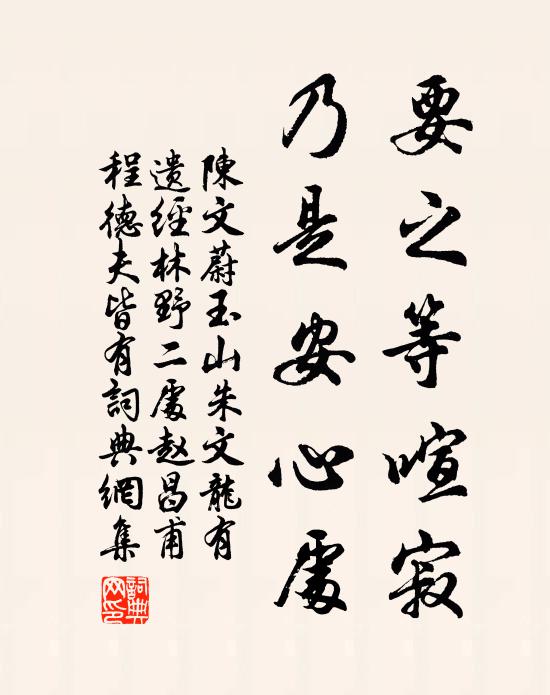 要之等喧寂
乃是安心處
陳文蔚玉山朱文龍有
遺經林野二處赵昌甫
程德夫皆有詞典網集
詞典网印